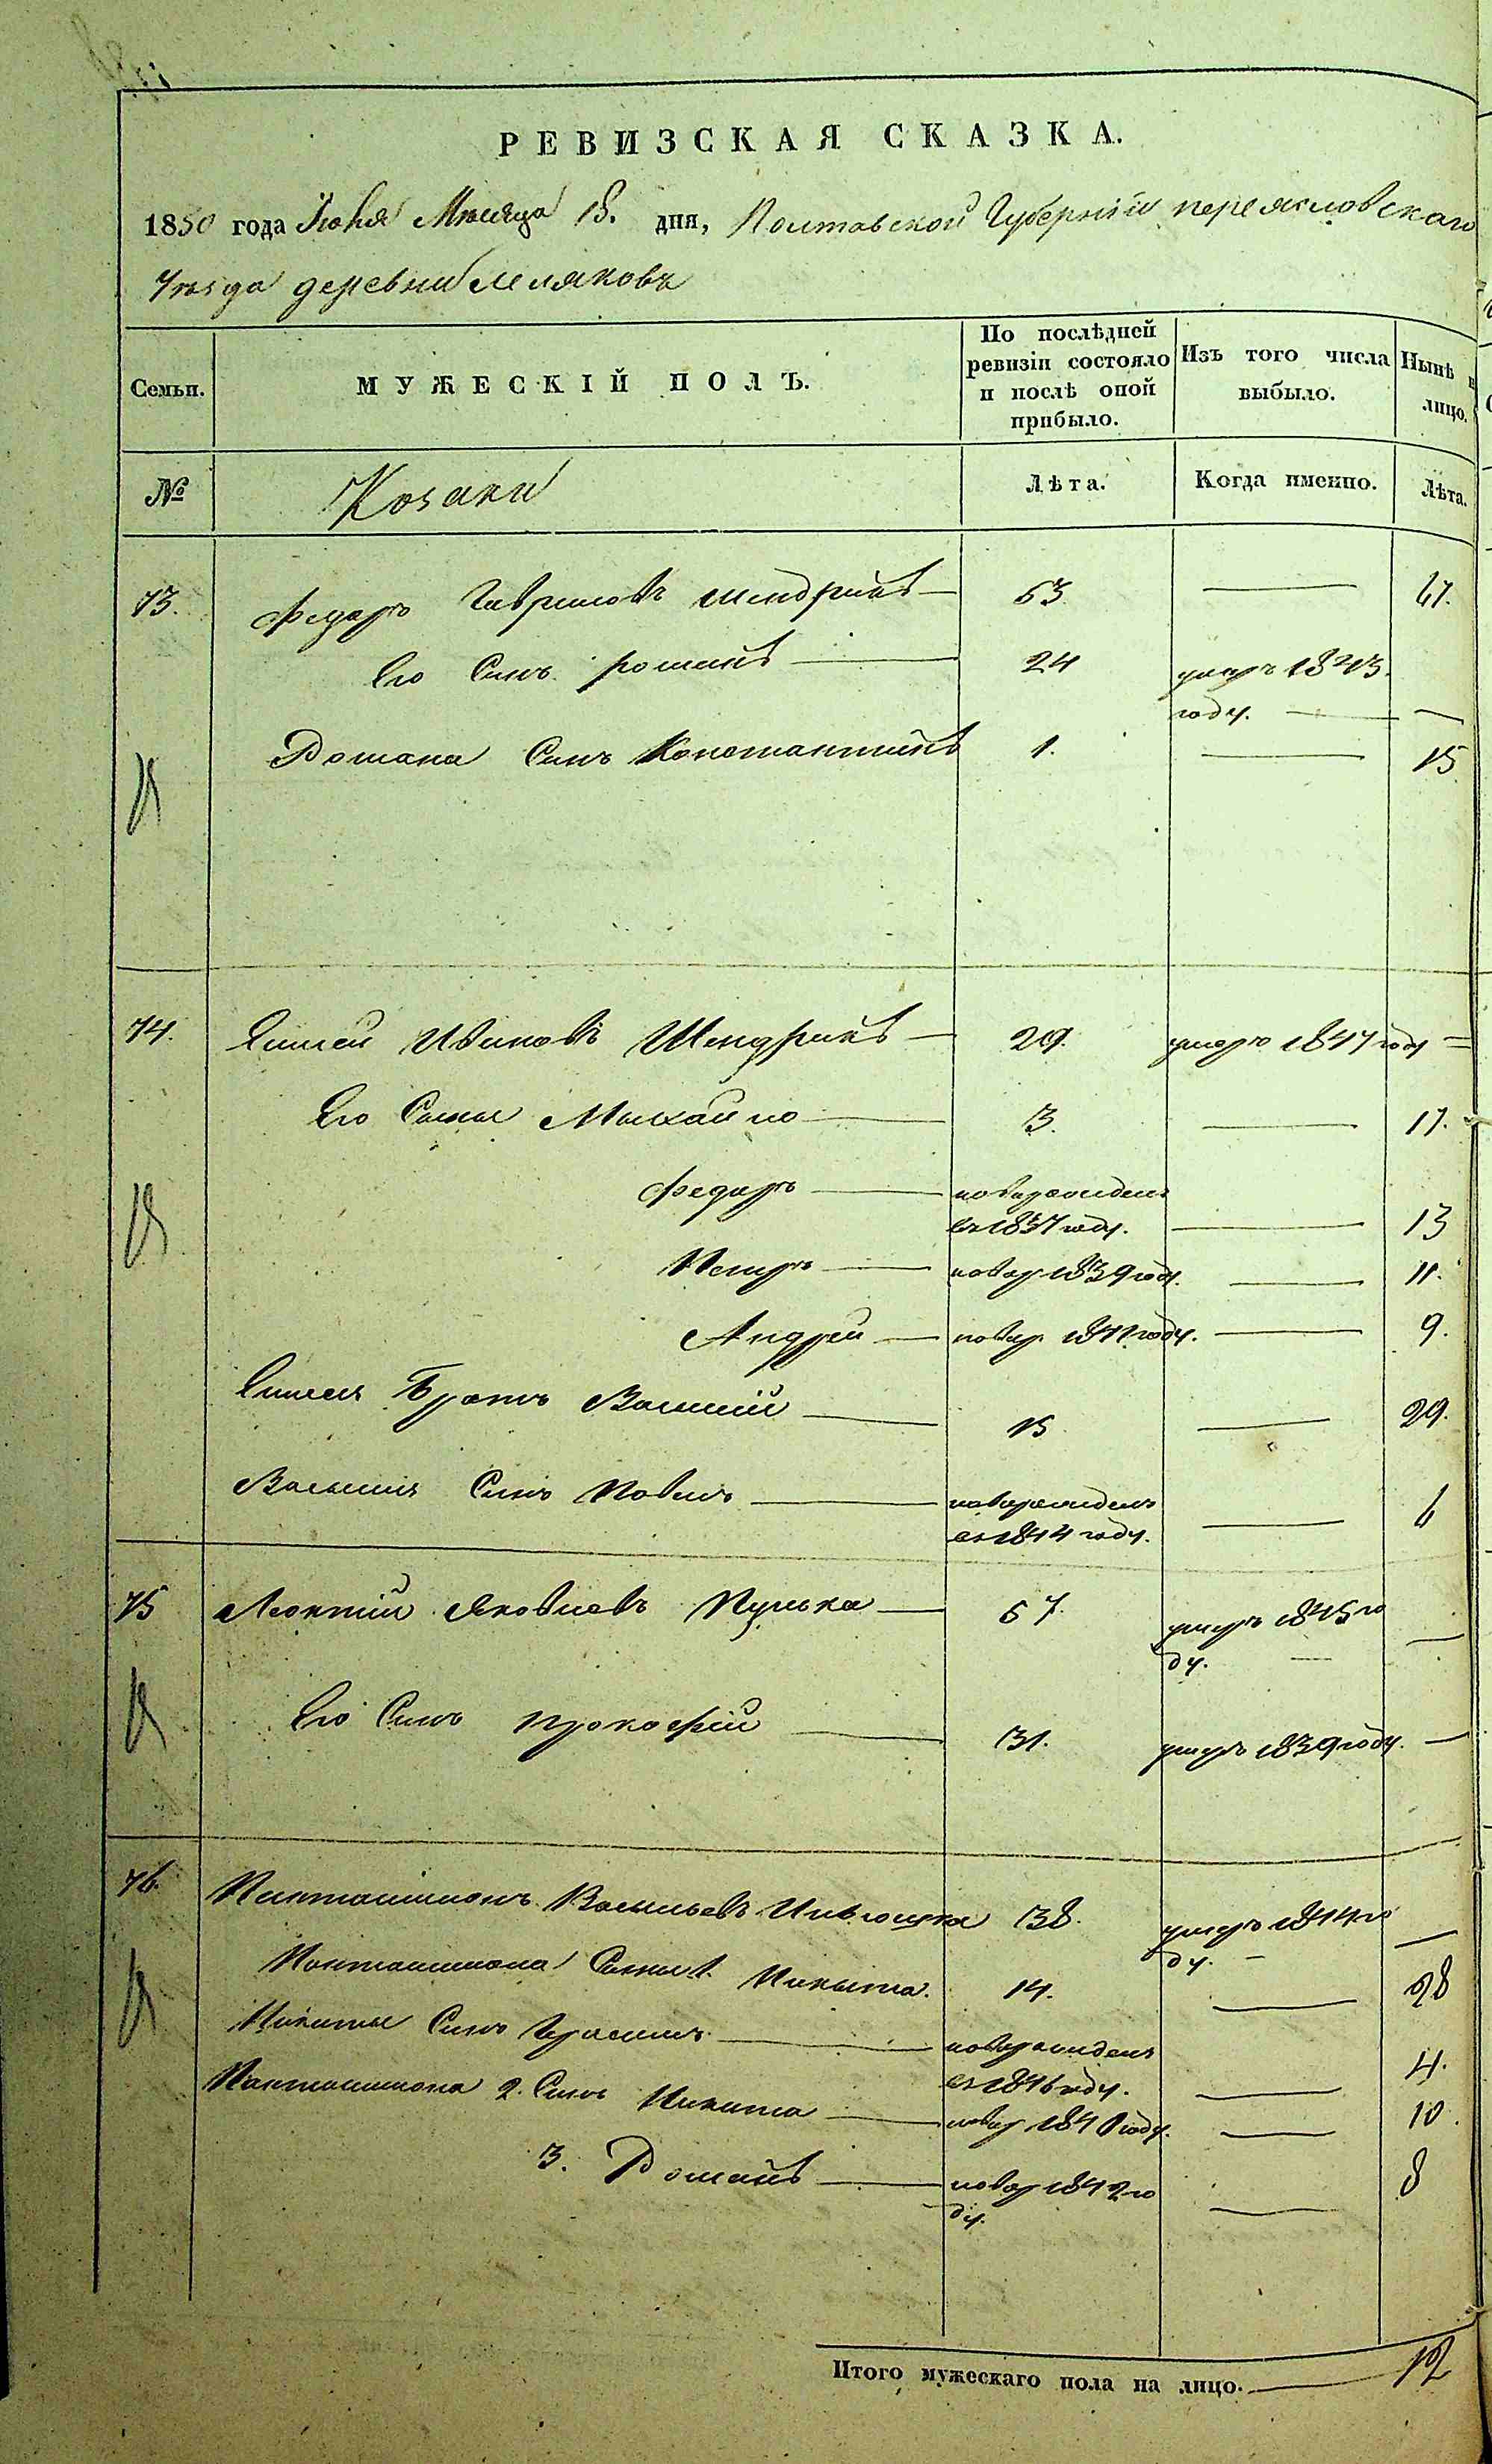 РЕВИЗСКАЯ СКАЗКА.
1850 года Июня Месяца 15. дня, Полтавской Губерніи переясловскаго
Уезда деревни Малякови
Семьи.
МУЖЕСКІЙ ПОЛЪ.
По послѣдней ревизіи состояло и послѣ оной прибыло.
Изъ того числа выбыло.
Нынѣ
лицо.
№
Козаки
Лѣта.
Когда именно.
Лѣта.
73. Федоръ Гавриловъ Шендрикъ — 53 — 67.
Его Синъ романъ — 24 умеръ 1843.
году. — —
Романа Синъ Константинъ 1. — 15
74. Ивановъ Шендрикъ — 29. умеръ 1847 году =
Его Сыны Михайло — 3. — 17.
Федоръ — новорожденъ
въ 1837 году. — 13
Петръ — новор 1839 году. — 11.
Андрей — новор. 1841 году. — 9.
Братъ Василій — 15 — 29.
Василия Синъ Павелъ — новорожденъ
въ 1844 году. — 6
75 Леонтій Яковлевъ Пулька — 57. умеръ 1845 го
ду. — —
Его Синъ прокофій — 31. умеръ 1839 году. —
76. Пантелимонъ Васильевъ 38. умеръ 1844 го
ду. — —
Пантелимона Сины 1. Никыта. 14. — 28
Никиты Синъ Герасимъ — новорожденъ
въ 1846 году. — 4.
Пантелимона 2. Синъ Никита — новор 1840 году. — 10.
3. Романъ — новор 1842 го
ду. — 8
Итого мужескаго пола на лицо. — 12